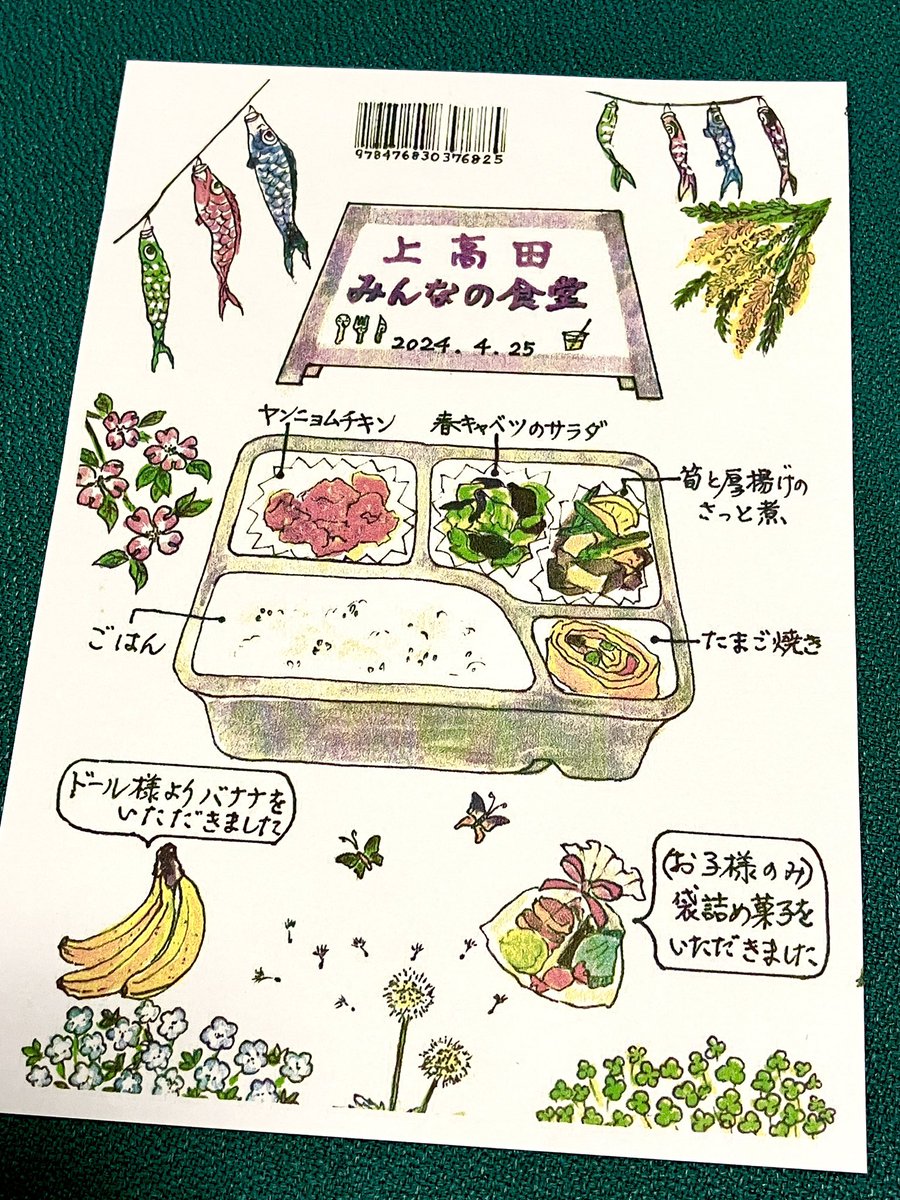 9784768303768​25
上高田
みんなの食堂
2024.4.25
ヤンニョムチキン
春キャベツのサラダ
筍と厚揚げの
さっと煮、
ごはん
たまご焼き
ドール様よりバナナを
いただきました
(お子様のみ)
袋詰め菓子を
いただきました